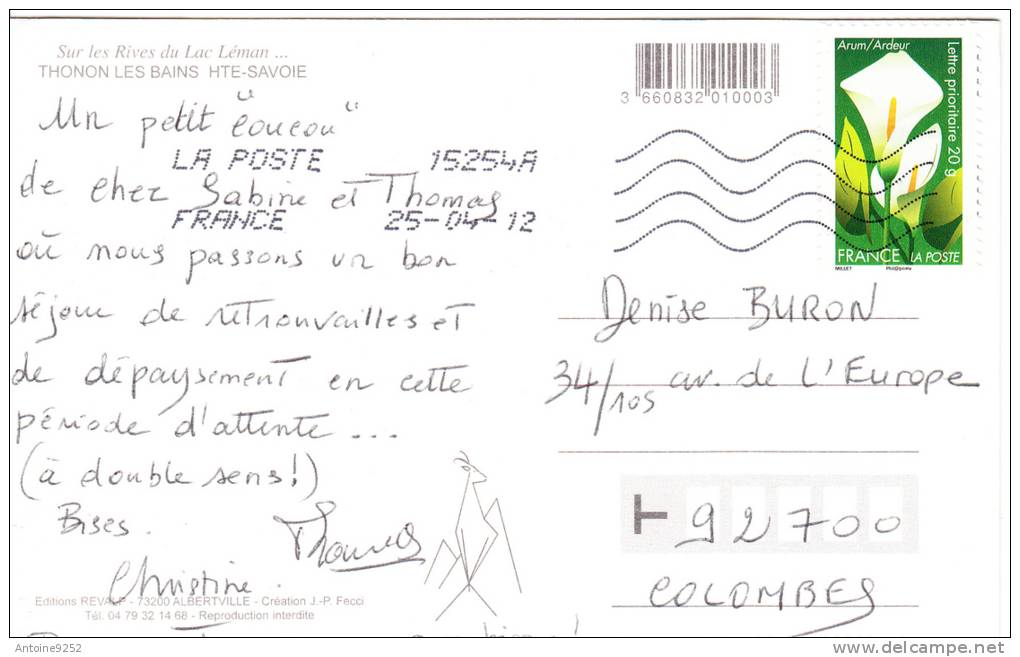 Sur les Rives du Lac Léman ...
THONON LES BAINS HTE-SAVOIE
Un petit "coucou"
de chez Sabine et Thomas
où nous passons un bon
séjour de retrouvailles et
de dépaysement en cette
période d'attente ...
(à double sens!)
Bises.
Thomas
Christine.
Editions REVALP - 73200 ALBERTVILLE - Création J.-P. Fecci
Tél. 04 79 32 14 68 - Reproduction interdite
LA POSTE 15254A
FRANCE 25-04-12
3 660832 010003
Arum/Ardeur
Lettre prioritaire 20 g
FRANCE LA POSTE
MILLET Phil@poste
Denise BURON
34/105 av. de L'Europe
T 92700
COLOMBES
Antoine9252